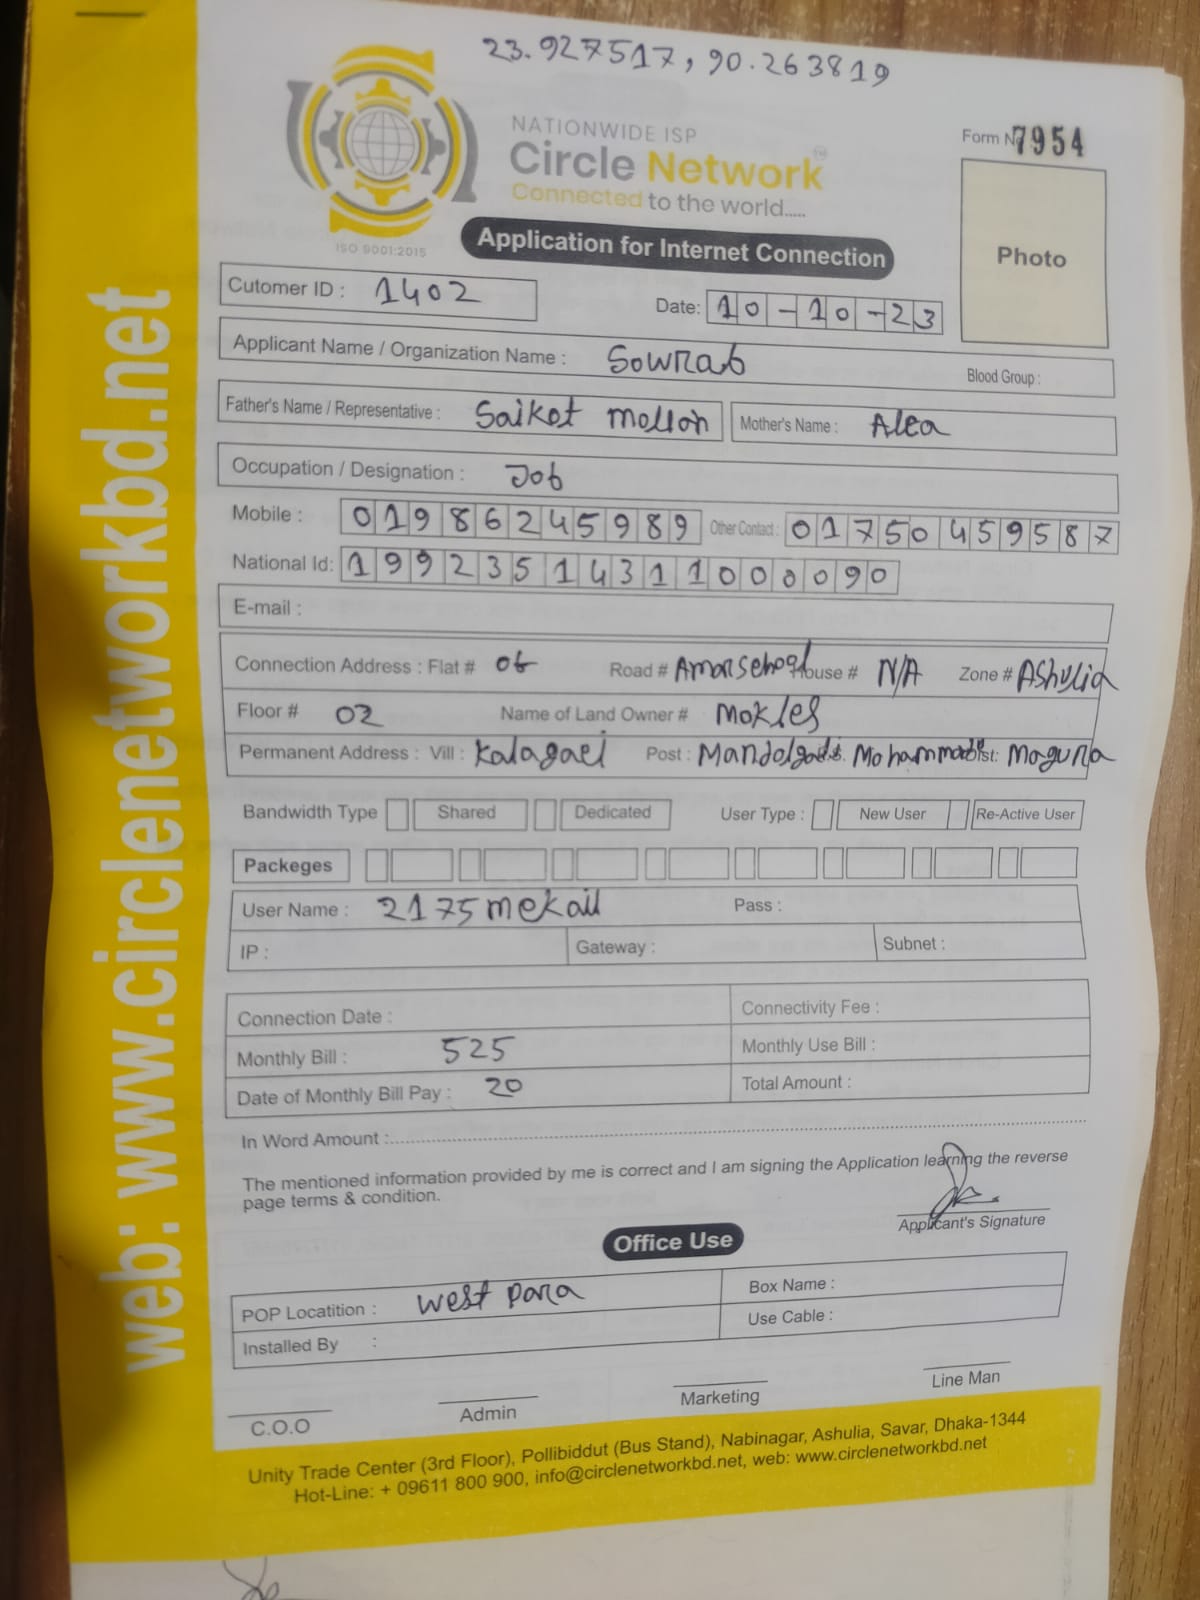 23.927517, 90.263819
NATIONWIDE ISP
Circle Network™
Connected to the world.....
ISO 9001:2015
Form No 7954
Photo
Application for Internet Connection
Cutomer ID : 1402
Date: 10-10-23
Applicant Name / Organization Name : Sowrab
Blood Group :
Father's Name / Representative : Saiket mollah Mother's Name : Alea
Occupation / Designation : Job
Mobile : 01986245989 Other Contact : 01750459587
National Id: 19923514311000090
E-mail :
Connection Address : Flat # 06 Road # Amansehool House # N/A Zone # Ashulia
Floor # 02 Name of Land Owner # Mokles
Permanent Address : Vill : Kalagaei Post : P.S. Mohammad Dist: Magura
Bandwidth Type Shared Dedicated User Type : New User Re-Active User
Packeges
User Name : 2175mekail Pass :
IP : Gateway : Subnet :
Connection Date : Connectivity Fee :
Monthly Bill : 525 Monthly Use Bill :
Date of Monthly Bill Pay : 20 Total Amount :
In Word Amount :
The mentioned information provided by me is correct and I am signing the Application learning the reverse
page terms & condition.
Applicant's Signature
Office Use
POP Locatition : west para Box Name :
Installed By : Use Cable :
C.O.O Admin Marketing Line Man
Unity Trade Center (3rd Floor), Pollibiddut (Bus Stand), Nabinagar, Ashulia, Savar, Dhaka-1344
Hot-Line: + 09611 800 900, info@circlenetworkbd.net, web: www.circlenetworkbd.net
web: www.circlenetworkbd.net